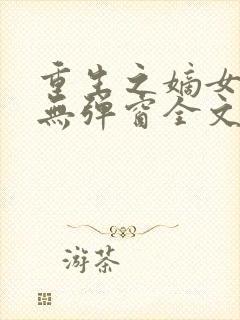 重生之嫡女
無彈窗全文
游茶